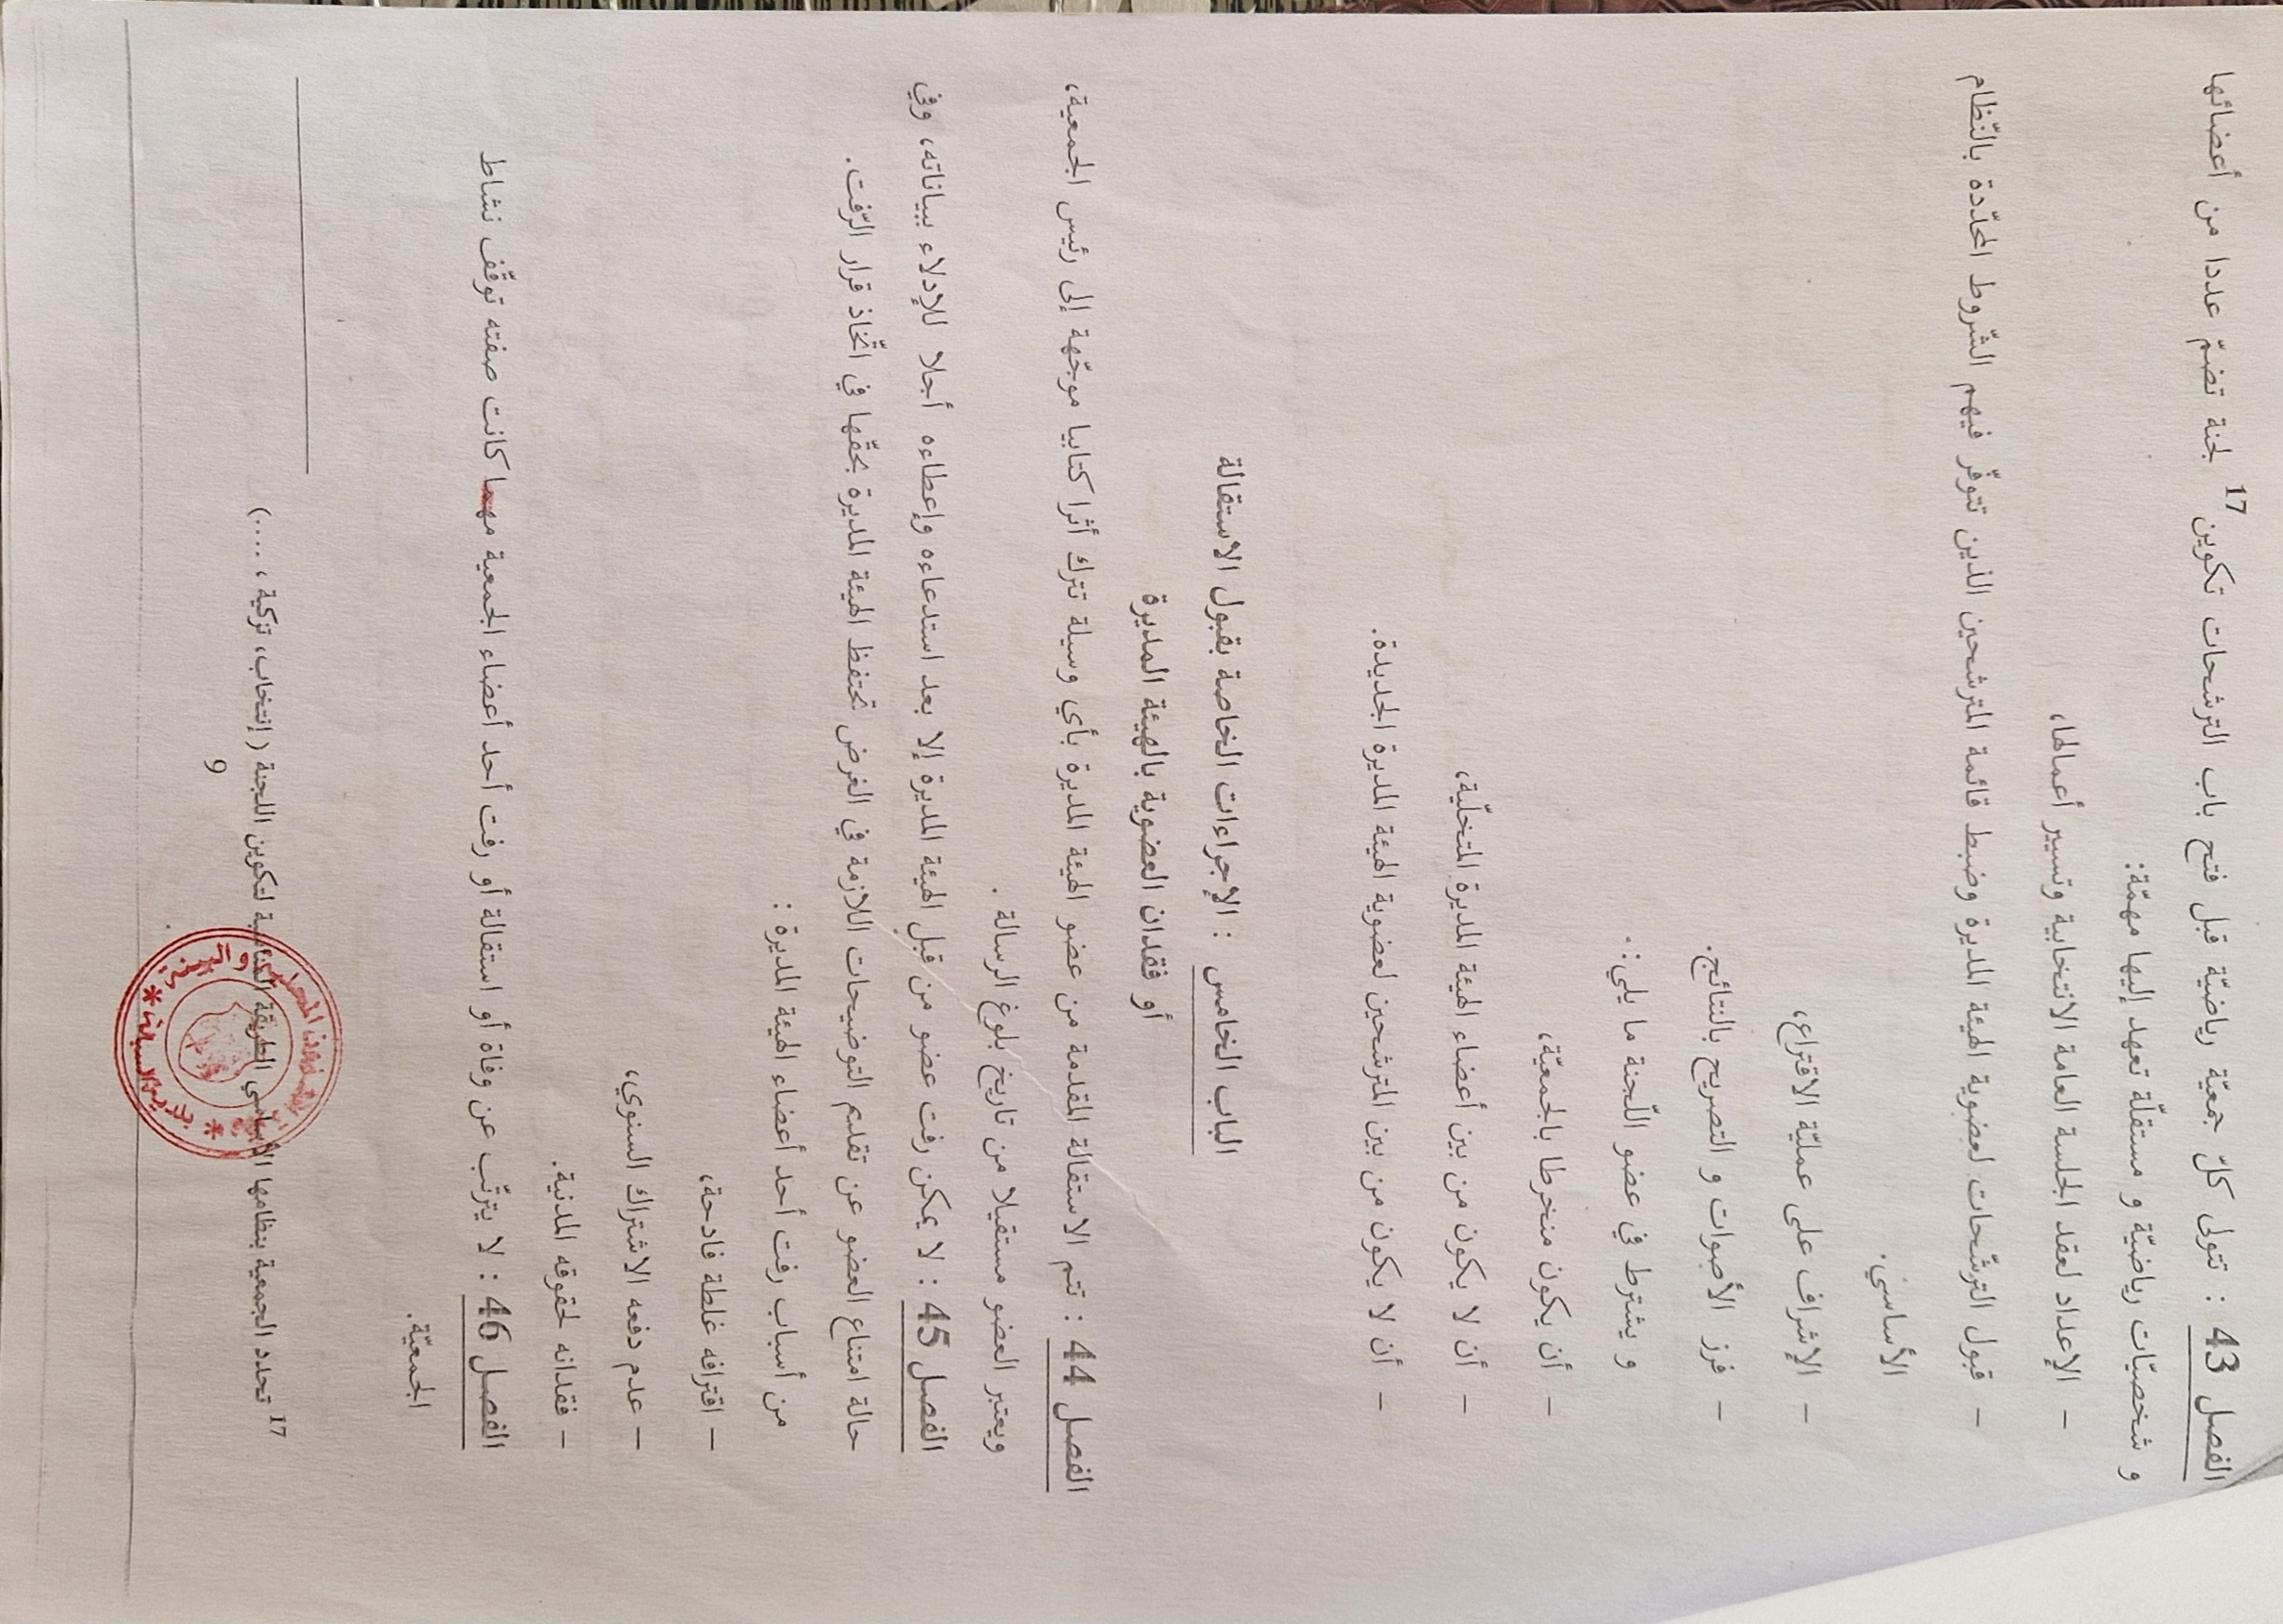 الفصل 43 : تتولى كلّ جمعيّة رياضيّة قبل فتح باب الترشحات تكوين 17 لجنة تضمّ عددا من أعضائها
و شخصيّات رياضيّة و مستقلّة تعهد إليها مهمّة:
– الإعداد لعقد الجلسة العامة الانتخابية وتسيير أعمالها،
– قبول الترشّحات لعضوية الهيئة المديرة وضبط قائمة المترشحين الذين تتوفّر فيهم الشّروط المحدّدة بالنّظام
الأساسي.
– الإشراف على عمليّة الاقتراع،
– فرز الأصوات و التصريح بالنتائج.
و يشترط في عضو اللّجنة ما يلي: .
– أن يكون منخرطا بالجمعيّة،
– أن لا يكون من بين أعضاء الهيئة المديرة المتخلّية،
– أن لا يكون من بين المترشحين لعضوية الهيئة المديرة الجديدة.
الباب الخامس : الإجراءات الخاصة بقبول الاستقالة
أو فقدان العضوية بالهيئة المديرة
الفصل 44 : تتم الاستقالة المقدمة من عضو الهيئة المديرة بأي وسيلة تترك أثرا كتابيا موجّهة إلى رئيس الجمعية،
ويعتبر العضو مستقيلا من تاريخ بلوغ الرسالة .
الفصل 45 : لا يمكن رفت عضو من قبل الهيئة المديرة إلا بعد استدعاءه وإعطاءه أجلا للإدلاء ببياناته، وفي
حالة امتناع العضو عن تقديم التوضيحات اللازمة في الغرض تحتفظ الهيئة المديرة بحقّها في اتّخاذ قرار الرّفت.
من أسباب رفت أحد أعضاء الهيئة المديرة :
– اقترافه غلطة فادحة،
– عدم دفعه الاشتراك السنوي،
– فقدانه لحقوقه المدنية.
الفصل 46 : لا يترتّب عن وفاة أو استقالة أو رفت أحد أعضاء الجمعية مهما كانت صفته توقّف نشاط
الجمعيّة.
17 تحدد الجمعية بنظامها الأساسي الطريقة المناسبة لتكوين اللجنة ( إنتخاب، تزكية ، ....)
9
المحلية و البيئة
* بلدية *